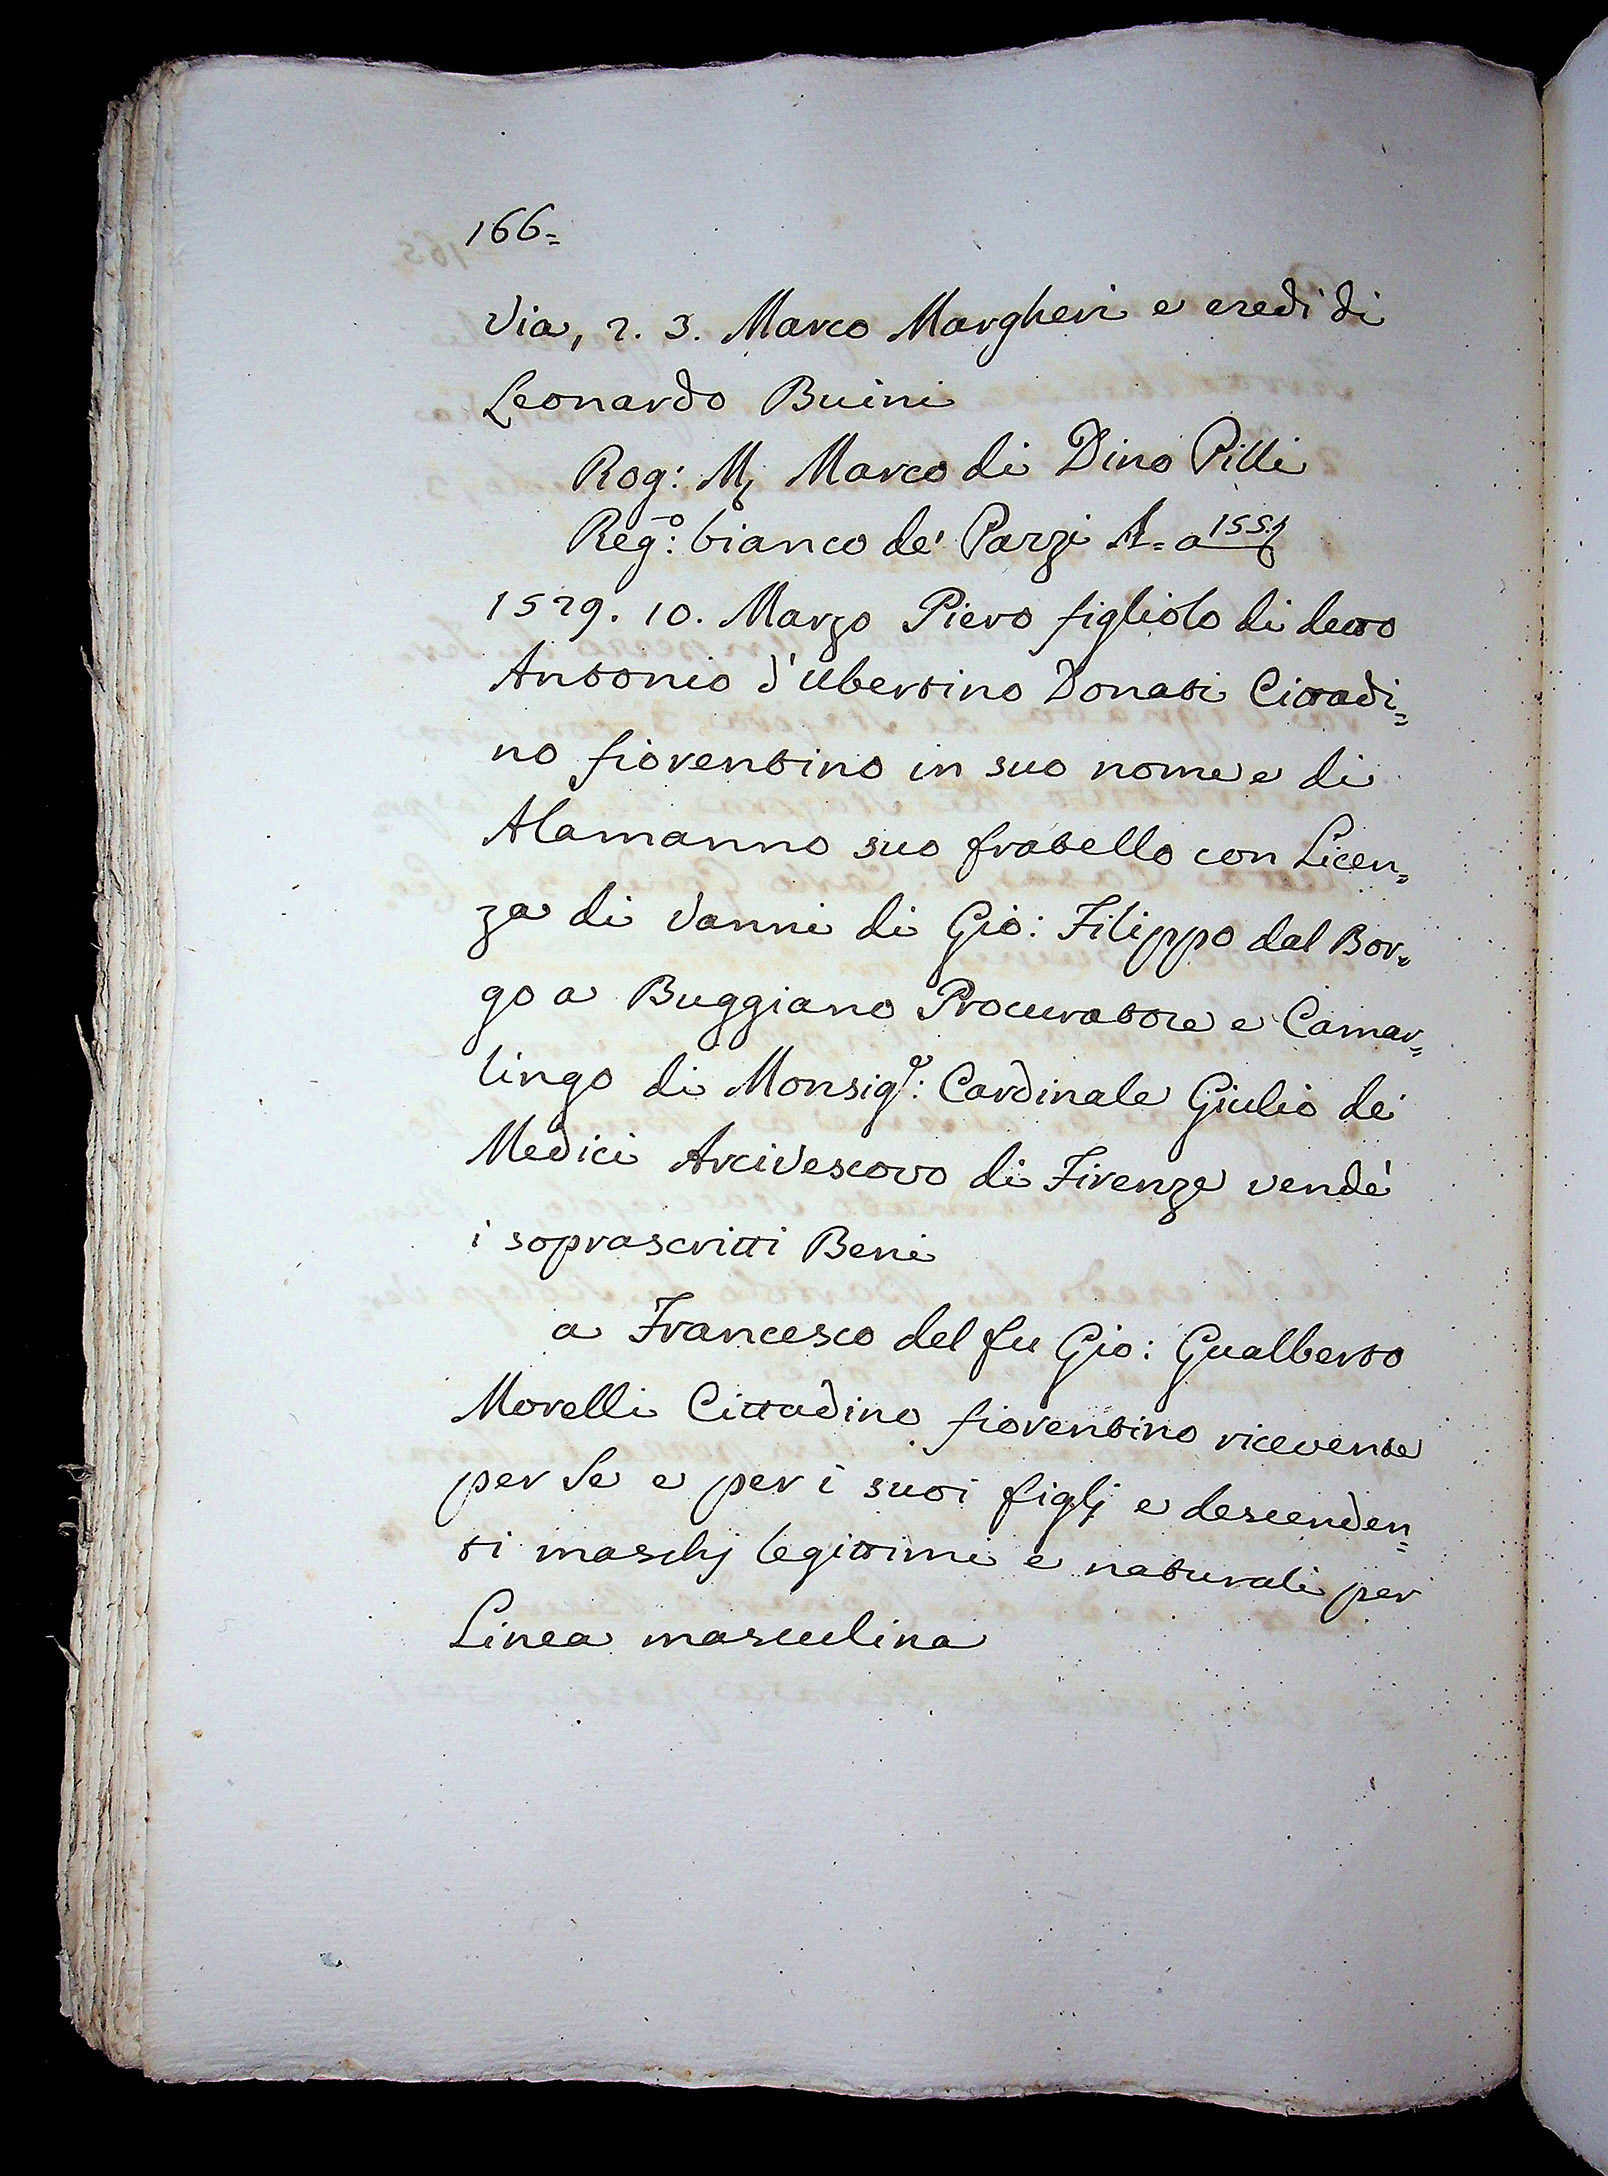 166=
Via, 2. 3. Marco Margheri e eredi di
Leonardo Buini
Rog: M. Marco di Dino Pilli
Reg:o bianco de' Pazzi A= a
1529. 10. Marzo Piero figliolo di detto
Antonio d'Ubertino Donati Cittadi=
no fiorentino in suo nome e di
Alamanno suo fratello con Licen=
za di Vanni di Gio: Filippo dal Bor=
go a Buggiano Procuratore e Camar=
lingo di Monsig:e Cardinale Giulio de'
Medici Arcivescovo di Firenze vendè
i soprascritti Beni
a Francesco del fu Gio: Gualberto
Morelli Cittadino fiorentino ricevente
per Se e per i suoi figlj e descenden=
ti maschj legittimi e naturali per
Linea masculina